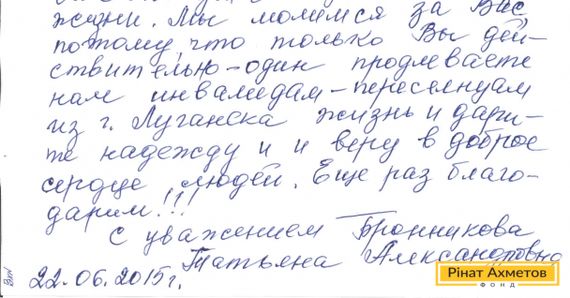 жизни. Мы молимся за Вас,
потому, что только Вы дей-
ствительно – один продлеваете
нам инвалидам – переселнцам
из г. Луганска жизнь и дари-
те надежду и и веру в доброе
сердце людей. Еще раз благо-
дарим!!!
С уважением Бронникова
Татьяна Александровна
22.06.2015г.
Рінат Ахметов
ФОНД